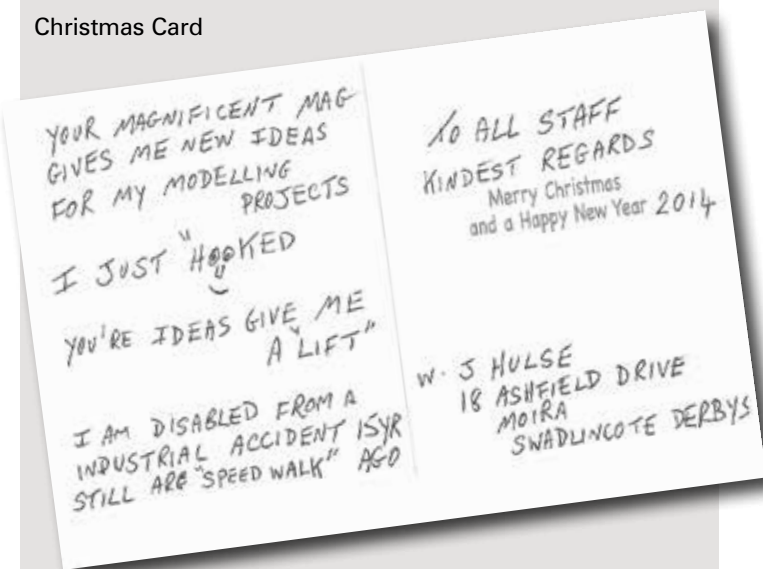 Christmas Card
YOUR MAGNIFICENT MAG
GIVES ME NEW IDEAS
FOR MY MODELLING
PROJECTS
I JUST "HOOKED
YOU'RE IDEAS GIVE ME
A "LIFT"
I AM DISABLED FROM A
INDUSTRIAL ACCIDENT 15YR
STILL ARE "SPEED WALK" AGO
TO ALL STAFF
KINDEST REGARDS
Merry Christmas
and a Happy New Year 2014
W. J HULSE
18 ASHFIELD DRIVE
MOIRA
SWADLINCOTE DERBYS